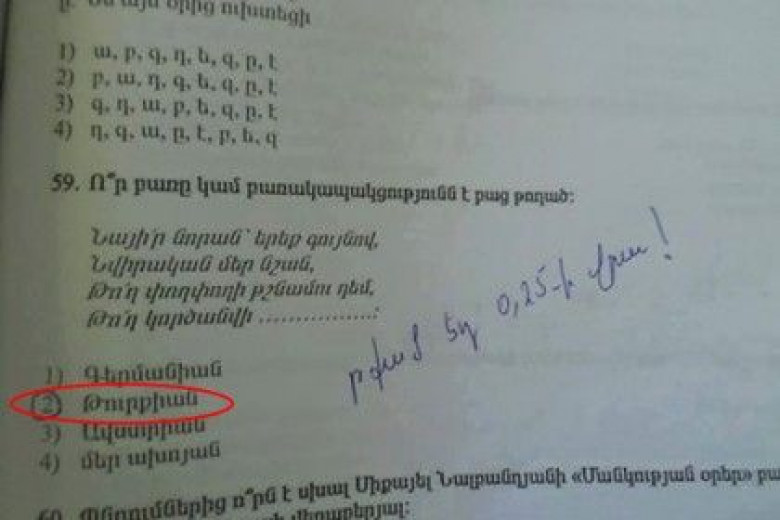 օրից ուխտեցի
1) ա, բ, գ, դ, ե, զ, ը, է
2) բ, ա, դ, գ, ե, զ, ը, է
3) գ, դ, ա, բ, ե, զ, ը, է
4) դ, գ, ա, ը, է, բ, ե, զ
59. Ո՞ր բառը կամ բառակապակցությունն է բաց թողած:
Նայի՛ր նորան՝ երեք գույնով,
Նվիրական մեր նշան,
Թո՛ղ փողփողի թշնամու դեմ,
Թո՛ղ կործանվի ................:
0,25-ի վրա!
1) Գերմանիան
2) Թուրքիան
3) Ավստրիան
4) մեր ախոյան
60. Պնդումներից ո՞րն է սխալ Միքայել Նալբանդյանի «Մանկության օրեր» բա
վերաբերյալ: